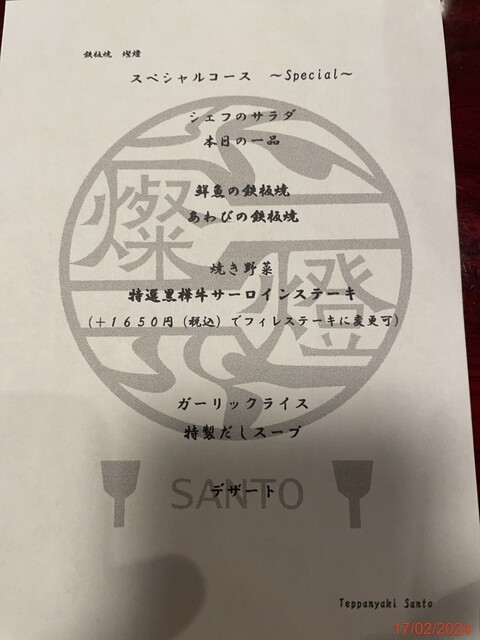 鉄板焼 燦燈
スペシャルコース ～Special～
シェフのサラダ
本日の一品
鮮魚の鉄板焼
あわびの鉄板焼
燦
燈
焼き野菜
特選黒樺牛サーロインステーキ
(＋1650円（税込）でフィレステーキに変更可)
ガーリックライス
特製だしスープ
デザート
SANTO
Teppanyaki Santo
17/02/2024